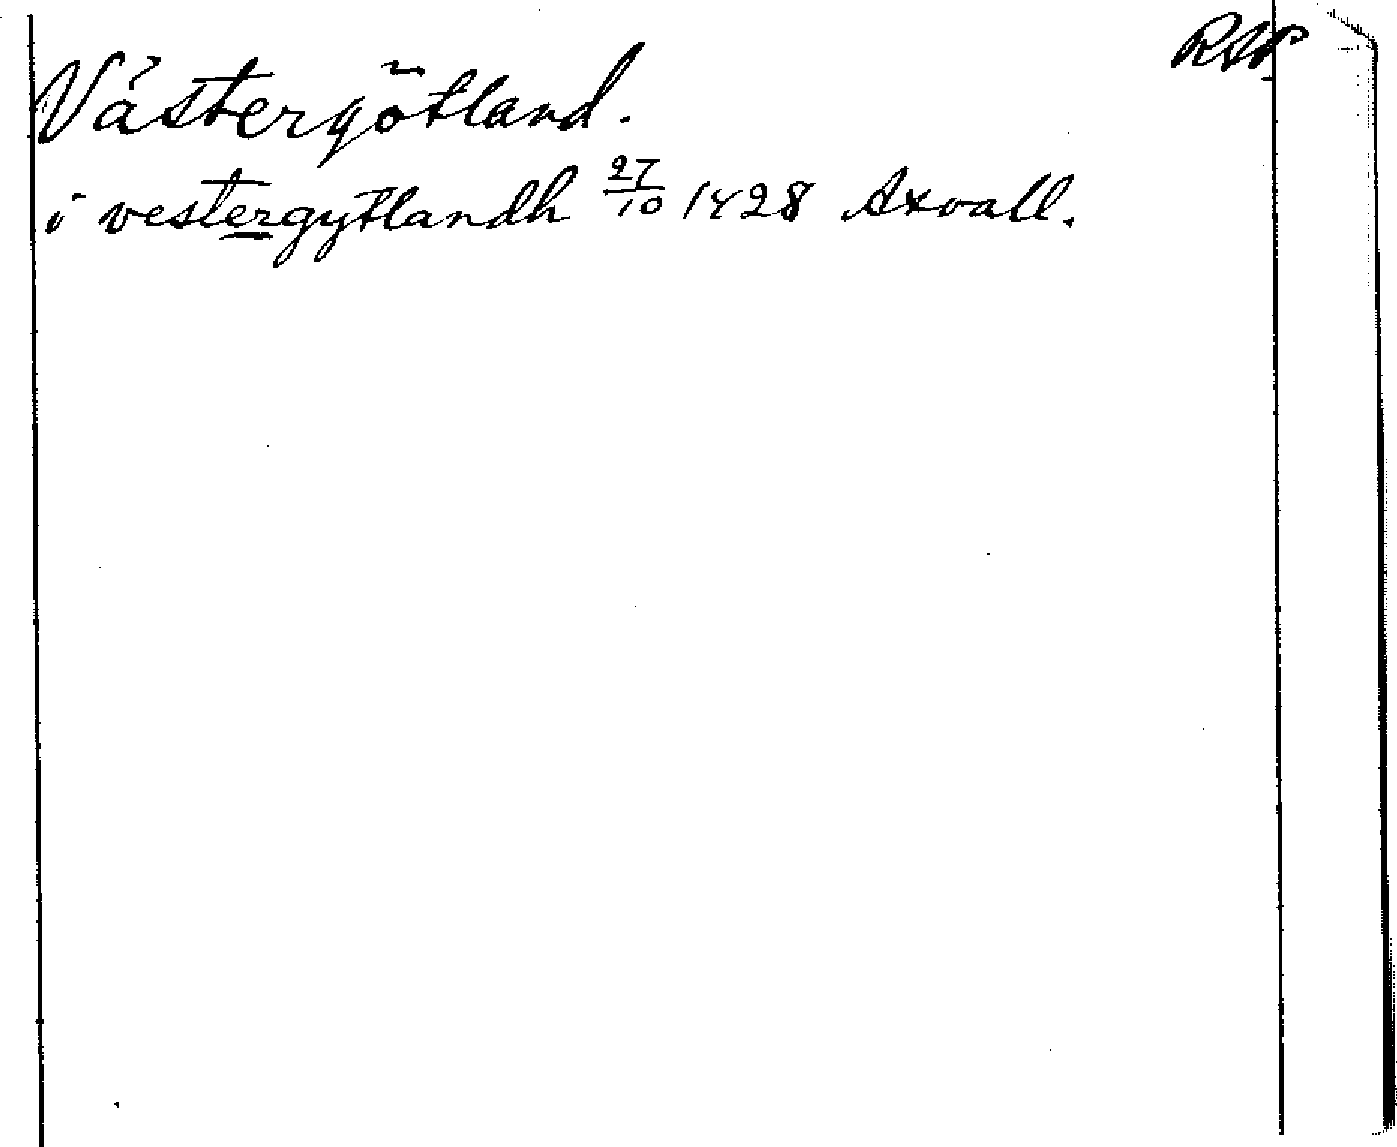 RAP.
Västergötland.
i vestergytlandh 27/10 1428 Axvall.